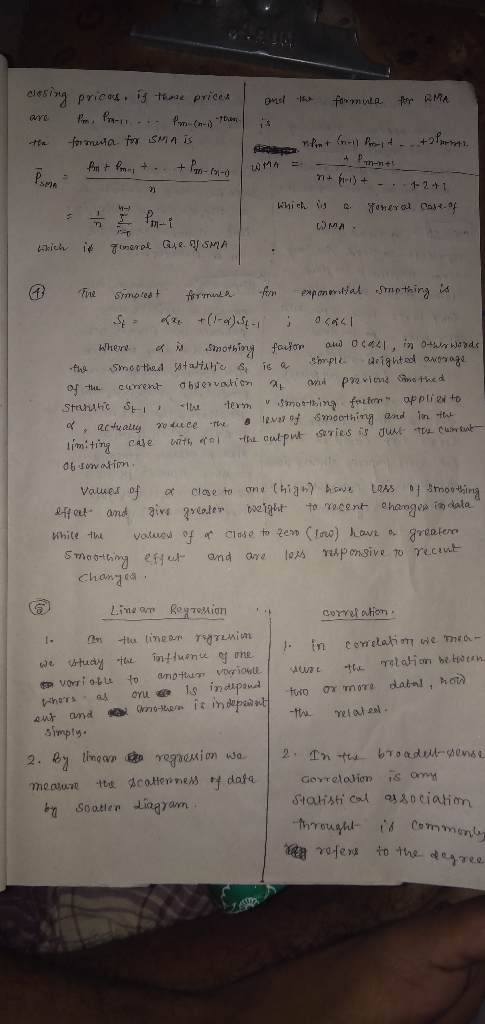 closing prices. if those prices
are Pm, Pm-1, ... Pm-(n-1) then
the formula for SMA is
P̄SMA = Pm + Pm-1 + ... + Pm-(n-1) / n
= 1/n Σ i=0 n-1 Pm-i
which is general Case of SMA
and the formula for WMA
is
WMA = nPm + (n-1) Pm-1 + ... + 2Pm-n+2 + Pm-n+1 / n + (n-1) + ... + 2 + 1
which is a general case of
WMA.
④ The simplest formula for exponential smothing is
St = αxt + (1-α)St-1 ; 0<α<1
where α is smothing factor and 0<α<1, in other words
the smoothed statistic St is a simple weighted average
of the current observation xt and previous smothed
statistic St-1, the term "smoothing factor" applied to
α, actually reduce the level of smoothing and in the
limiting case with α=1 the output series is just the current
observation.
Values of α close to one (high) have less of smoothing
effect and give greater weight to recent changes in data
while the values of α close to zero (low) have a greater
smoothing effect and are less responsive to recent
changes.
⑤ Linear Regression
1. In the linear regression
we study the influence of one
variable to another variable
where as one is independ
ent and another is independent
simply.
2. By linear regression we
measure the scatterness of data
by scatter diagram.
correlation.
1. in correlation we mea-
sure the relation between
two or more datas, how
the related.
2. In the broadest sense
correlation is any
statistical association
throught it commonly
refers to the degree